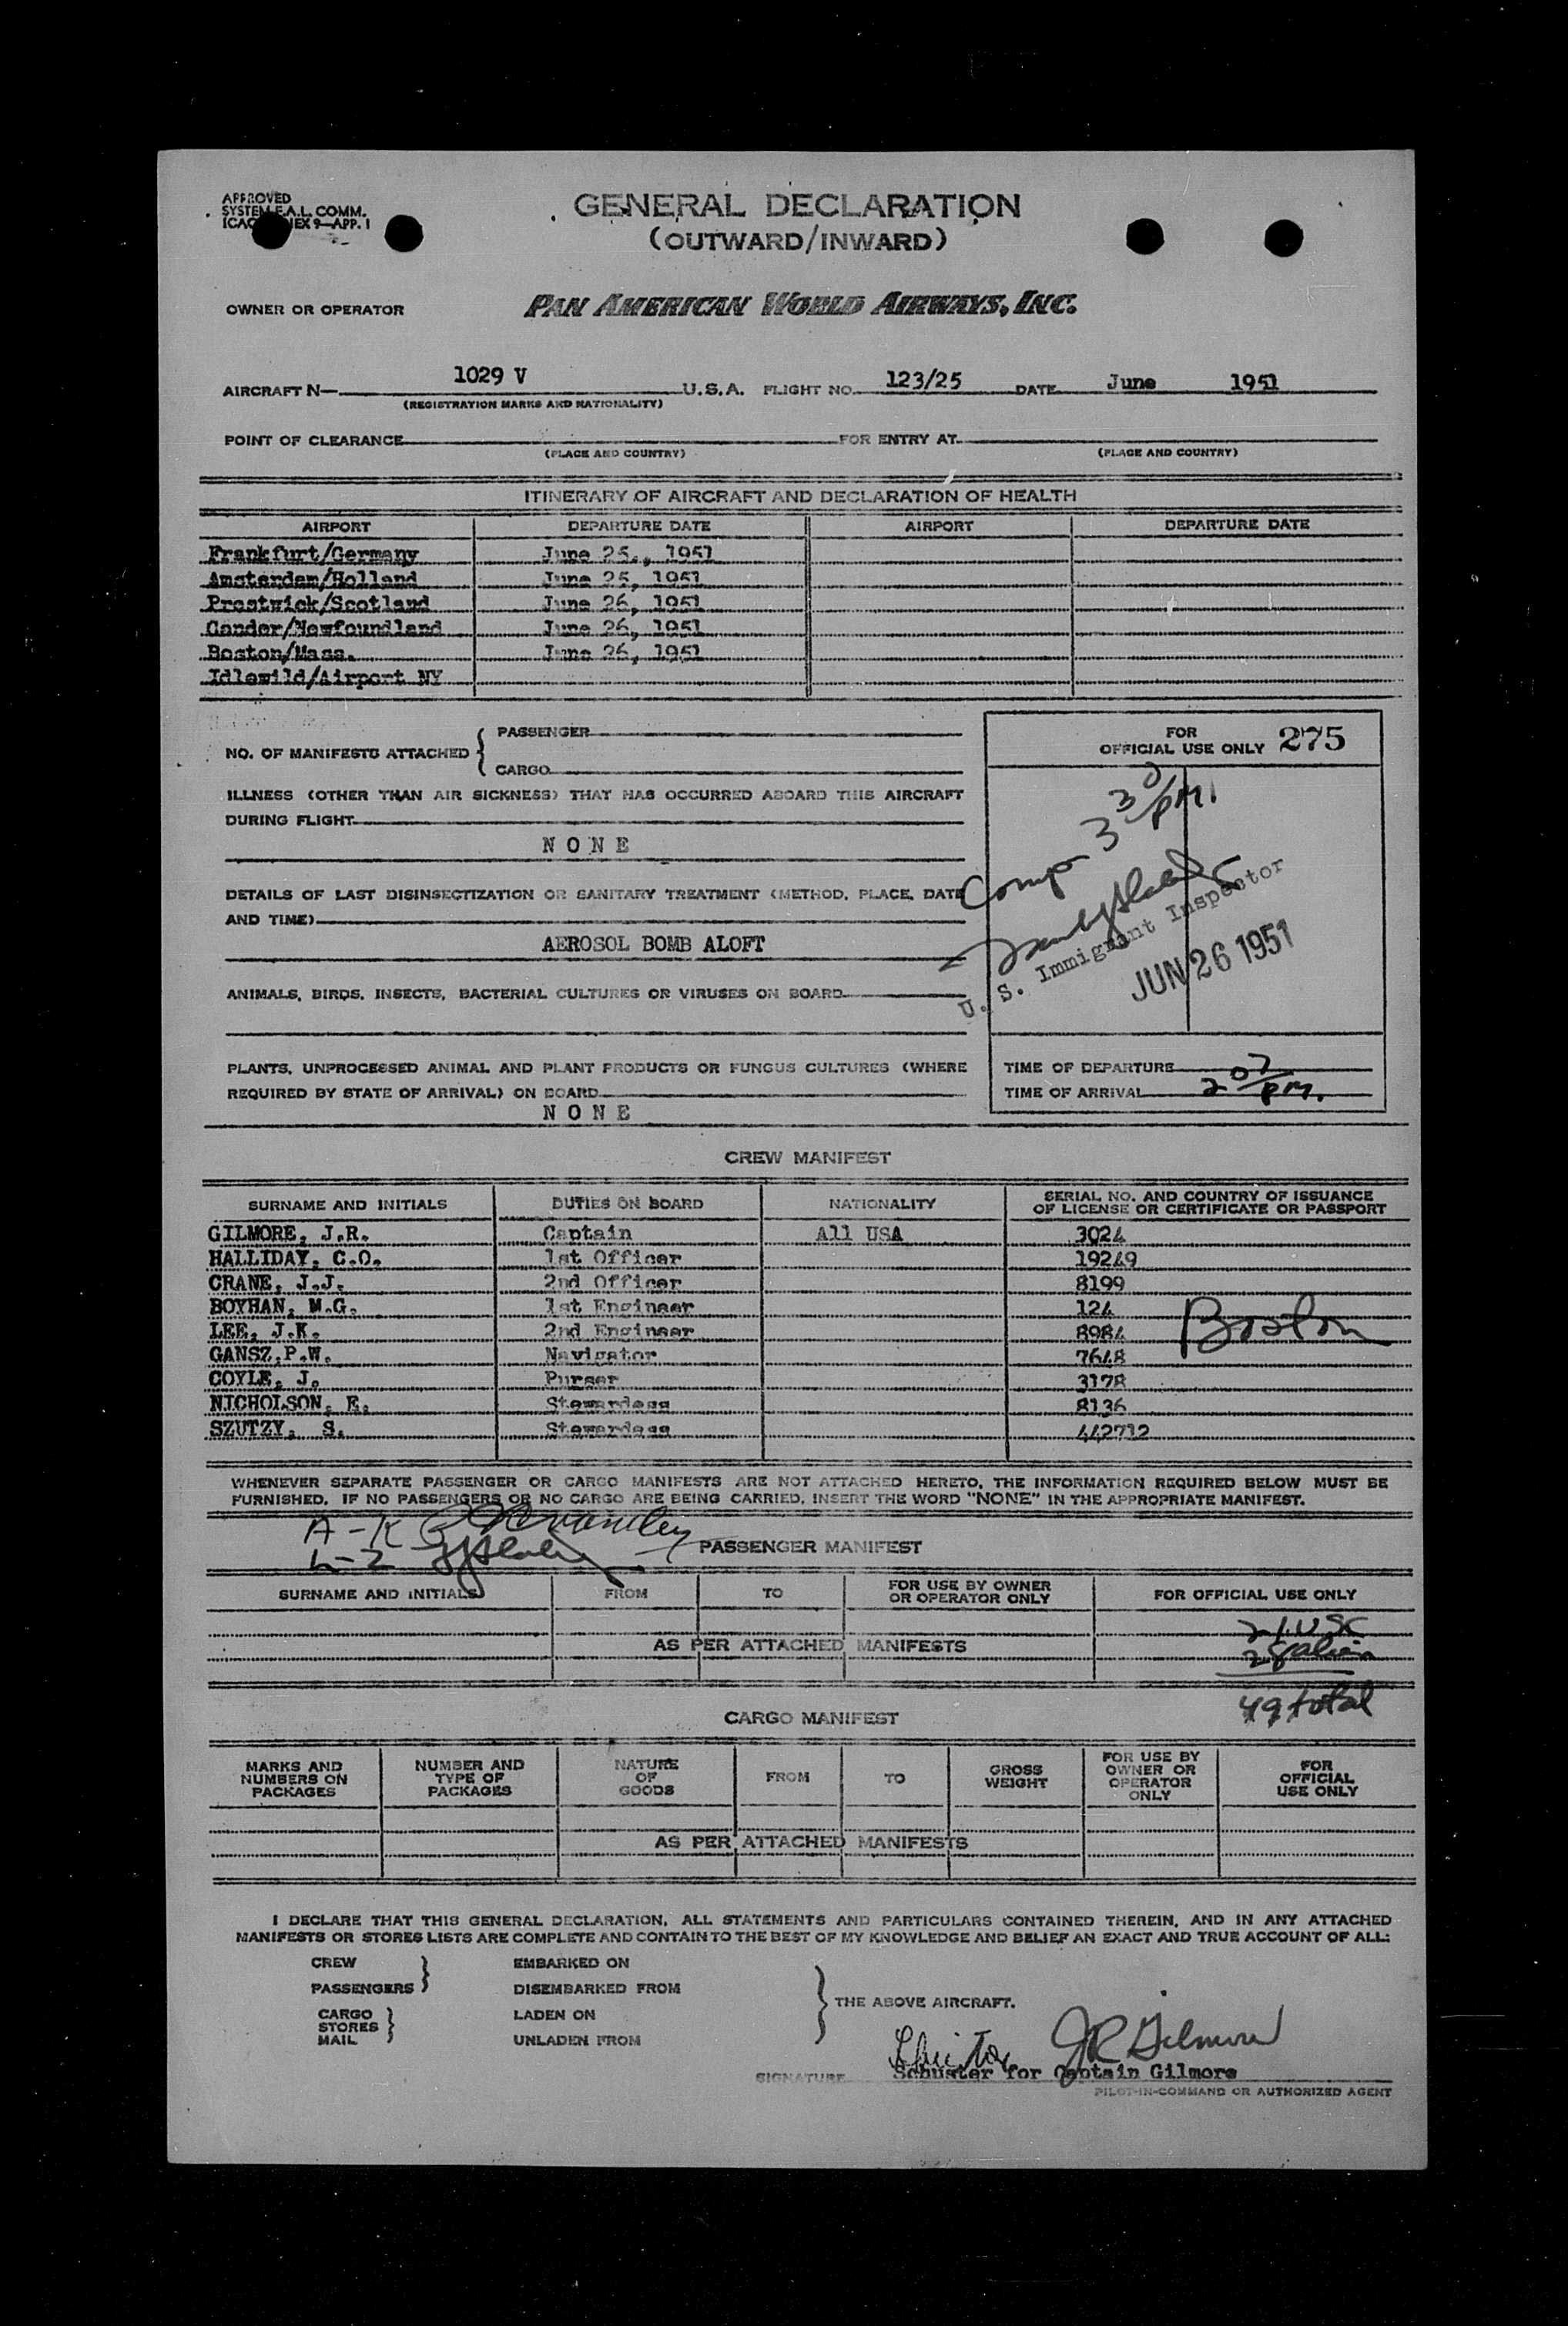 APPROVED
SYSTEM F.A.L. COMM.
ICAO ANNEX 9—APP. 1
GENERAL DECLARATION
(OUTWARD/INWARD)
OWNER OR OPERATOR PAN AMERICAN WORLD AIRWAYS, INC.
AIRCRAFT N— 1029 V U.S.A. FLIGHT NO. 123/25 DATE June 1951
(REGISTRATION MARKS AND NATIONALITY)
POINT OF CLEARANCE FOR ENTRY AT
(PLACE AND COUNTRY) (PLACE AND COUNTRY)
ITINERARY OF AIRCRAFT AND DECLARATION OF HEALTH
AIRPORT DEPARTURE DATE AIRPORT DEPARTURE DATE
Frankfurt/Germany June 25., 1951
Amsterdam/Holland June 25, 1951
Prestwick/Scotland June 26, 1951
Gander/Newfoundland June 26, 1951
Boston/Mass. June 26, 1951
Idlewild/Airport NY
NO. OF MANIFESTS ATTACHED { PASSENGER
CARGO
FOR
OFFICIAL USE ONLY 275
ILLNESS (OTHER THAN AIR SICKNESS) THAT HAS OCCURRED ABOARD THIS AIRCRAFT
DURING FLIGHT
N O N E
Comp 3 30/PM.
DETAILS OF LAST DISINSECTIZATION OR SANITARY TREATMENT (METHOD, PLACE, DATE
AND TIME)
AEROSOL BOMB ALOFT
U. S. Immigrant Inspector
JUN 26 1951
ANIMALS, BIRDS, INSECTS, BACTERIAL CULTURES OR VIRUSES ON BOARD
PLANTS, UNPROCESSED ANIMAL AND PLANT PRODUCTS OR FUNGUS CULTURES (WHERE
REQUIRED BY STATE OF ARRIVAL) ON BOARD
N O N E
TIME OF DEPARTURE
TIME OF ARRIVAL 2 07/PM.
CREW MANIFEST
SURNAME AND INITIALS DUTIES ON BOARD NATIONALITY SERIAL NO. AND COUNTRY OF ISSUANCE
OF LICENSE OR CERTIFICATE OR PASSPORT
GILMORE, J.R. Captain All USA 3024
HALLIDAY, C.O. 1st Officer 19249
CRANE, J.J. 2nd Officer 8199
BOYHAN, M.G. 1st Engineer 124
LEE, J.K. 2nd Engineer 8984 Boston
GANSZ,P.W. Navigator 7648
COYLE, J. Purser 3178
NICHOLSON, E. Stewardess 8136
SZUTZY, S. Stewardess 442712
WHENEVER SEPARATE PASSENGER OR CARGO MANIFESTS ARE NOT ATTACHED HERETO, THE INFORMATION REQUIRED BELOW MUST BE
FURNISHED. IF NO PASSENGERS OR NO CARGO ARE BEING CARRIED, INSERT THE WORD "NONE" IN THE APPROPRIATE MANIFEST.
A-K
L-Z
PASSENGER MANIFEST
SURNAME AND INITIALS FROM TO FOR USE BY OWNER
OR OPERATOR ONLY FOR OFFICIAL USE ONLY
21 USC
AS PER ATTACHED MANIFESTS
28 alien
49 total
CARGO MANIFEST
MARKS AND
NUMBERS ON
PACKAGES
NUMBER AND
TYPE OF
PACKAGES
NATURE
OF
GOODS
FROM
TO
GROSS
WEIGHT
FOR USE BY
OWNER OR
OPERATOR
ONLY
FOR
OFFICIAL
USE ONLY
AS PER ATTACHED MANIFESTS
I DECLARE THAT THIS GENERAL DECLARATION, ALL STATEMENTS AND PARTICULARS CONTAINED THEREIN, AND IN ANY ATTACHED
MANIFESTS OR STORES LISTS ARE COMPLETE AND CONTAIN TO THE BEST OF MY KNOWLEDGE AND BELIEF AN EXACT AND TRUE ACCOUNT OF ALL:
CREW EMBARKED ON
PASSENGERS DISEMBARKED FROM
THE ABOVE AIRCRAFT.
CARGO LADEN ON
STORES
MAIL UNLADEN FROM
JR Gilmore
SIGNATURE Schuster for Captain Gilmore
PILOT-IN-COMMAND OR AUTHORIZED AGENT